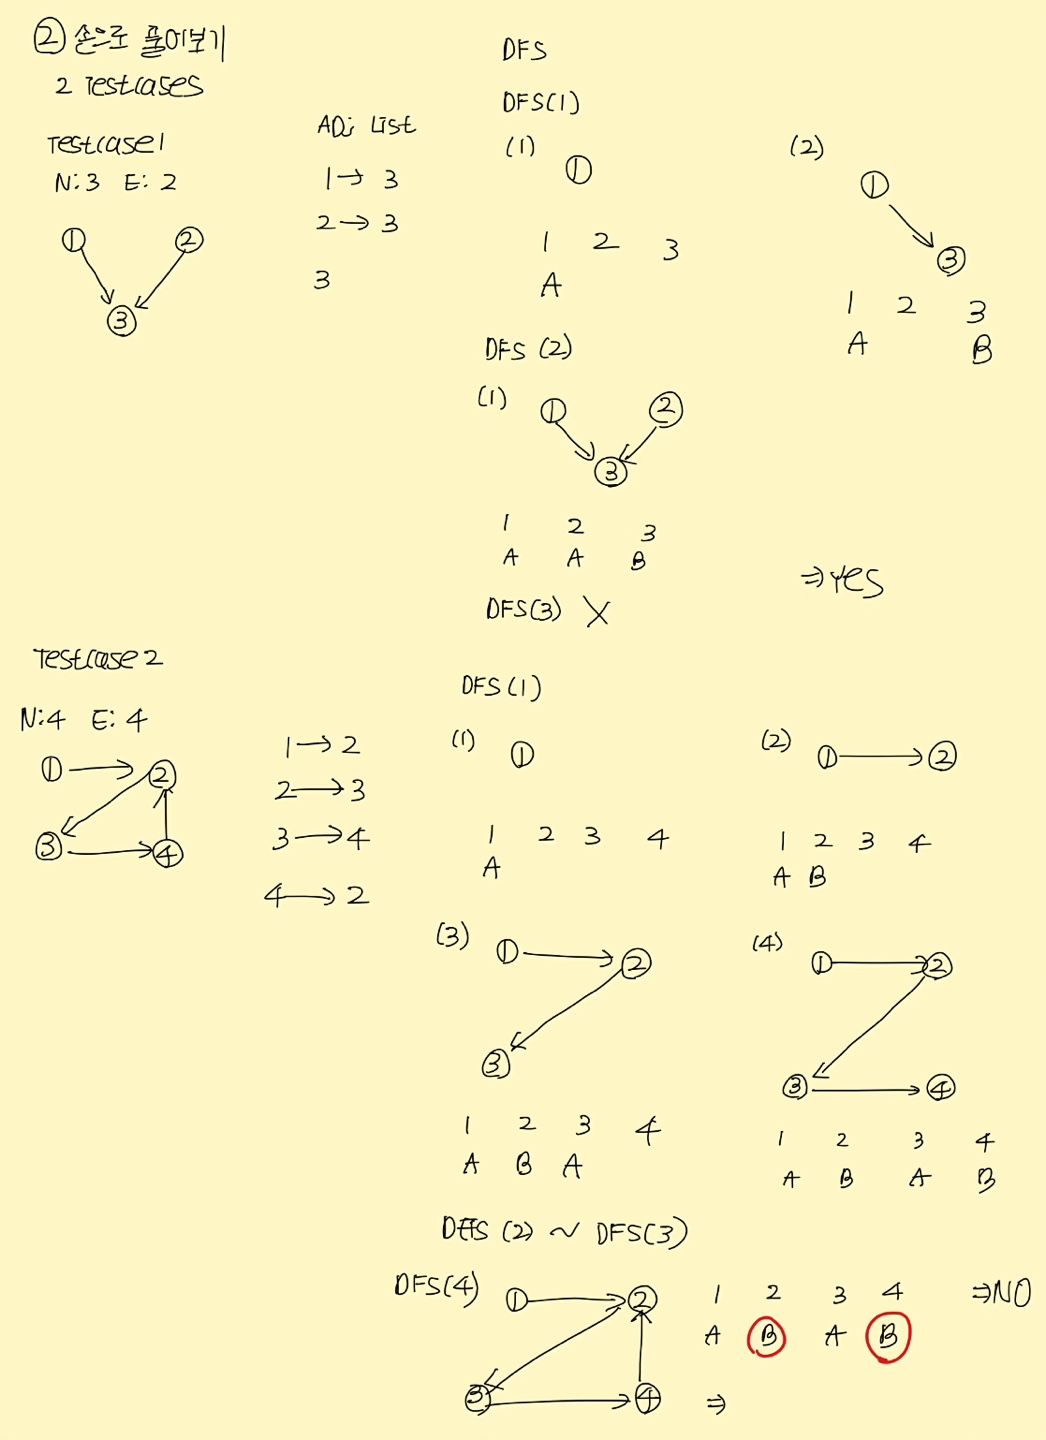 ② 손으로 풀어보기
2 Testcases
Testcase1
N:3 E: 2
① ②
③
ADj List
1→ 3
2→3
3
DFS
DFS(1)
(1) ①
1 2 3
A
(2) ①
③
1 2 3
A B
DFS (2)
(1) ① ②
③
1 2 3
A A B
DFS(3) X
⇒YES
Testcase2
N:4 E: 4
① → ②
③ → ④
1→2
2→3
3→4
4→2
DFS(1)
(1) ①
1 2 3 4
A
(2) ①→②
1 2 3 4
A B
(3) ① → ②
③
1 2 3 4
A B A
(4) ① → ②
③ → ④
1 2 3 4
A B A B
DFS (2) ~ DFS(3)
DFS(4) ① → ②
③ → ④ ⇒
1 2 3 4 ⇒NO
A B A B